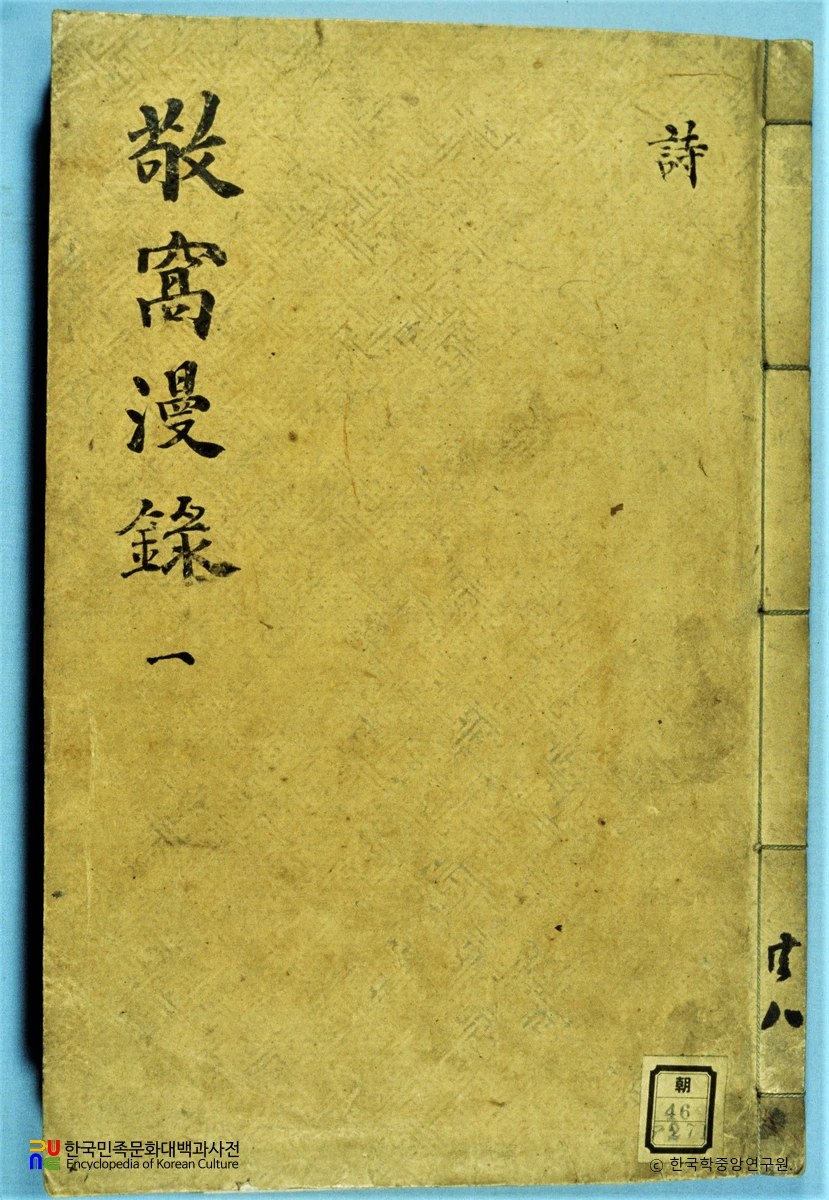 詩
敬窩漫錄 一
共八
朝
46
27
한국민족문화대백과사전
Encyclopedia of Korean Culture
© 한국학중앙연구원